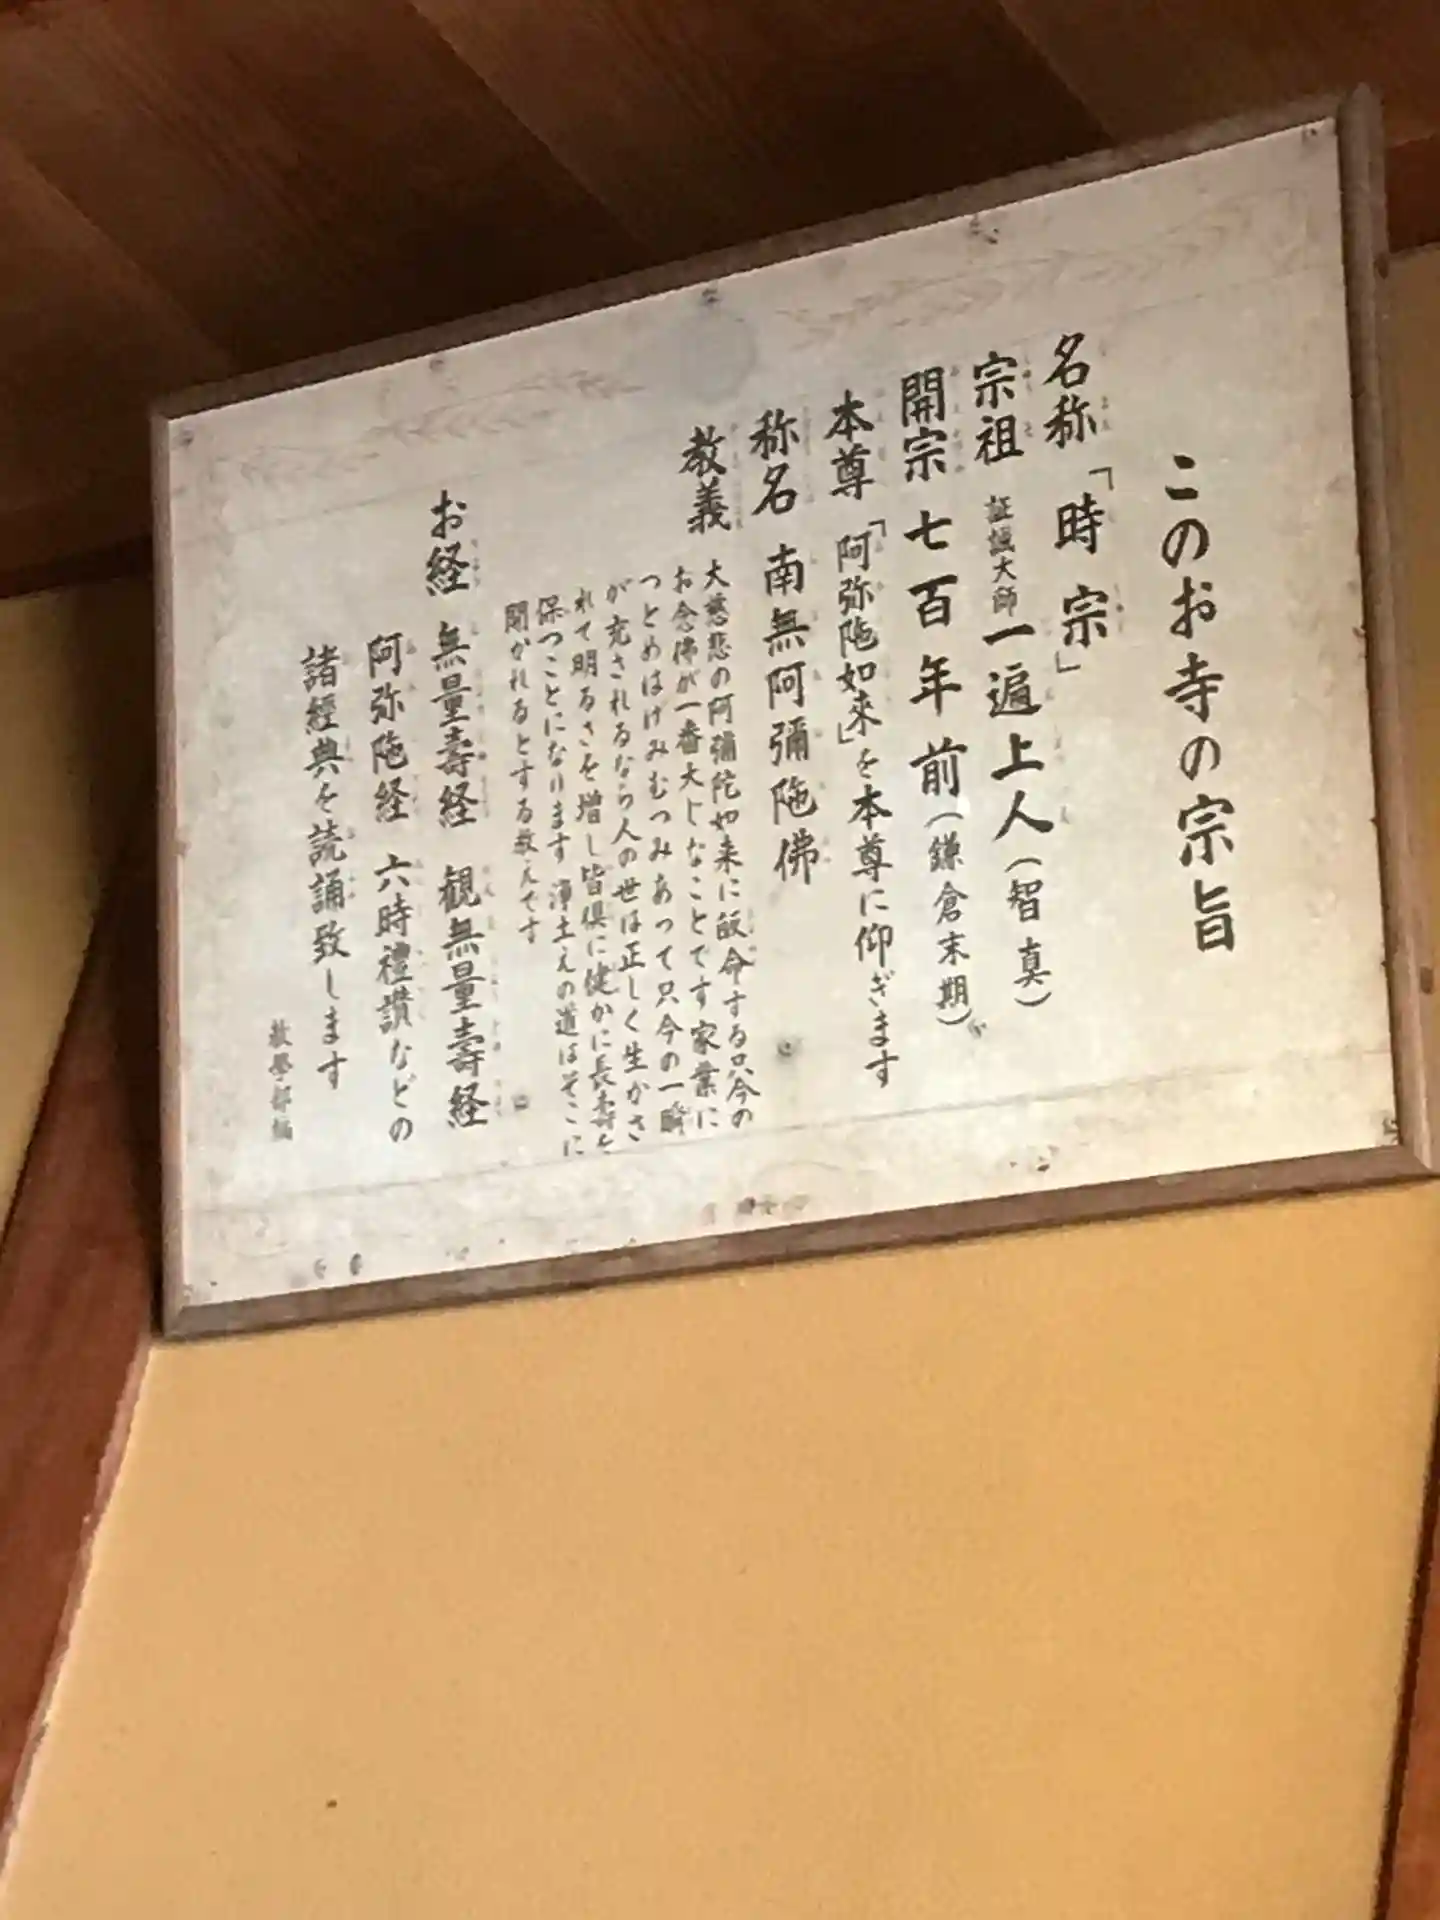 このお寺の宗旨
名称「時宗」
宗祖 証誠大師 一遍上人(智真)
開宗 七百年前(鎌倉末期)
本尊「阿弥陀如来」を本尊に仰ぎます
称名 南無阿彌陀佛
教義 大慈悲の阿彌陀如来に皈命する只今の
お念佛が一番大じなことです家業に
つとめはげみむつみあって只今の一瞬
が充されるなら人の世は正しく生かさ
れて明るさを増し皆倶に健かに長寿を
保つことになります 浄土えの道はそこに
開かれるとする教えです
お経 無量壽経 観無量壽経
阿弥陀経 六時禮讃などの
諸經典を読誦致します
教學部編